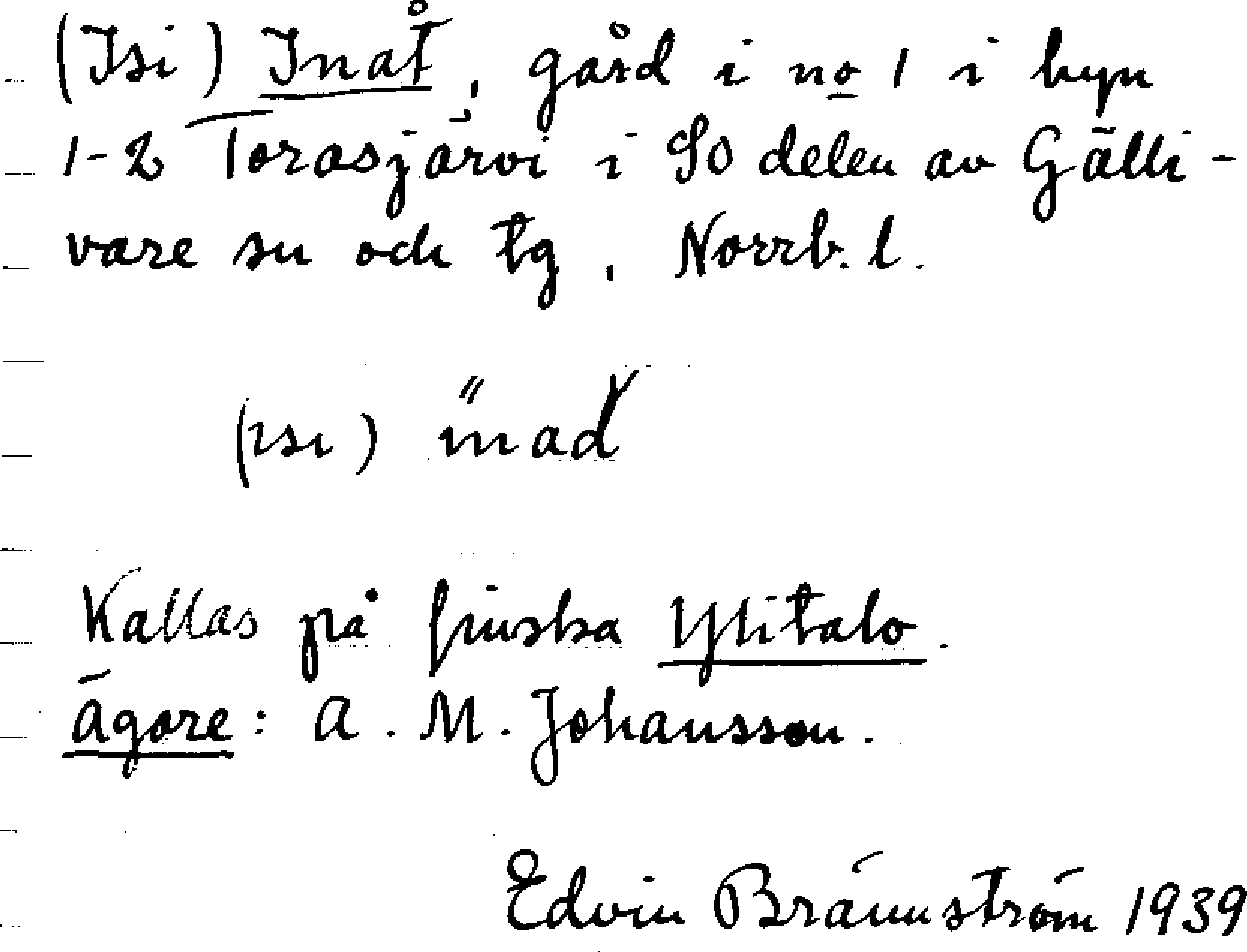 (Isi) Inåt, gård i no 1 i byn
1-2 Torasjärvi i SO delen av Gälli-
vare sn och tg, Norrb. l.
(ısı) ı̋nad
Kallas på finska Ylitalo.
Ägare: A. M. Johansson.
Edvin Brännström 1939